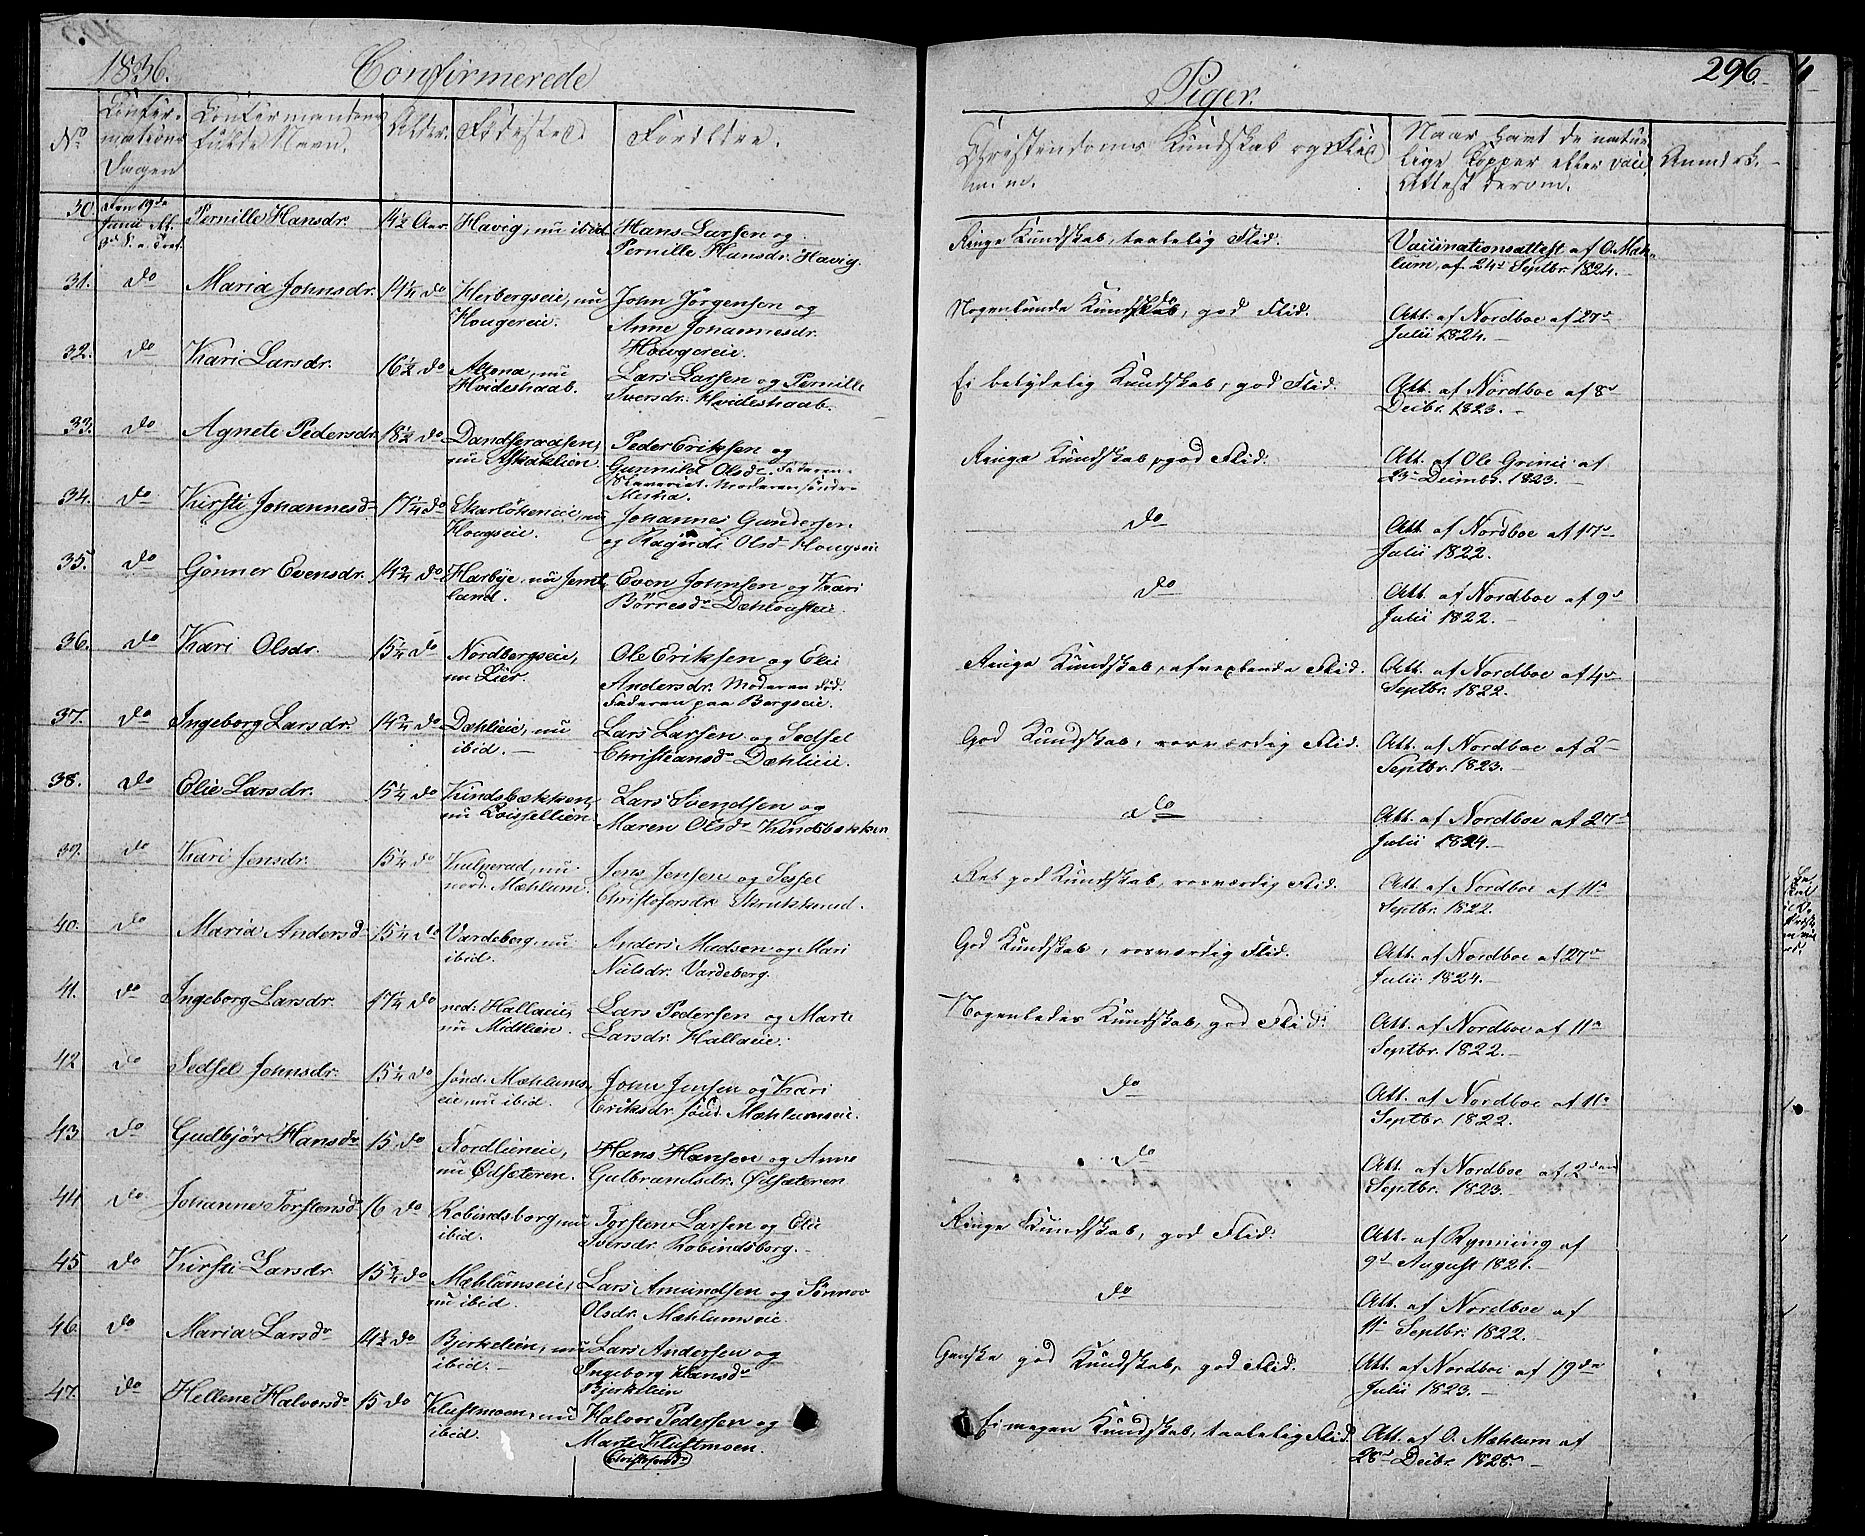 1836. Confirmerede Piger. 296.
No
Confir-
mations
Dagen
Confirmandens
fulde Navn.
Alder.
Födested.
Forældre.
Christendoms Kundskab og Flid
m. m.
Naar havt de natur
lige Kopper eller vacc.
Attest derom.
Anmærk.
30. Den 19de Pernille Hansdr. 14½ Aar. Havig, nu ibid Hans Larsen og
Pernille Hansdr. Havig.
Ringe Kundskab, taalelig Flid.
Vaccinationsattest af O. Mæh-
lum, af 24d Septbr. 1824.
31. do Maria Johnsdr. 14¼ do Herbergseie, nu
Hougereie.
John Jörgensen og
Anne Johannesdr.
Hougereie.
Nogenlunde Kundskab, god Flid.
Att. af Nordboe af 27d
Julii 1824.
32. do Kari Larsdr. 16½ do Altona, nu
Hvideskaab.
Lars Larsen og Pernille
Iversdr. Hvideskaab.
Ei betydelig Kundskab, god Flid.
Att. af Nordboe af 8d
Decbr. 1823.
33. do Agnete Pedersdr. 18½ do Dandseraasen,
nu Askaklien.
Peder Eriksen og
Gunnild Olsdr. Faderen
Slaveriet. Moderen söndre
Mesna.
Ringe Kundskab, god Flid.
Att. af Ole Grinii af
23d Decembr. 1823.
34. do Kirsti Johannesdr 17¼ do Skarlökeneie, nu
Hougseie.
Johannes Gundersen
og Ragndi Olsdr Hougseie
do
Att. af Nordboe af 17d
Julii 1822.
35. do Gönner Evensdr. 14¾ do Harbye, nu Jemt
land.
Even Johnsen og Kari
Börresdr Dæhlousteie.
do
Att. af Nordboe af 9d
Julii 1822.
36. do Kari Olsdr. 15¼ do Nordbergseie,
nu Lier.
Ole Eriksen og Elie
Andersdr. Moderen död.
Faderen paa Bergseie.
Ringe Kundskab, afvexlende Flid.
Att. af Nordboe af 4d
Septbr. 1822.
37. do Ingeborg Larsdr. 14¾ do Dæhlieie, nu
ibid.
Lars Larsen og Sedsel
Christiansdr Dæhlieie.
God Kundskab, rosværdig Flid.
Att. af Nordboe af 2
Septbr. 1823.
38. do Elie Larsdr. 15¼ do Kindsbækken,
nu Loissellien.
Lars Svendsen og
Maren Olsdr Kindsbækken
do
Att. af Nordboe af 27d
Julii 1824.
39. do Kari Jensdr. 15¼ do Kulverad, nu
nord. Mæhlum.
Jens Jensen og Sessel
Christofersdr Skrukkerud.
Ret god Kundskab, rosværdig Flid.
Att. af Nordboe af 11d
Septbr. 1822.
40. do Maria Andersdr 15¼ do Vardeberg, nu
ibid.
Anders Madsen og Mari
Nielsdr. Vardeberg.
God Kundskab, rosværdig Flid.
Att. af Nordboe af 27d
Julii 1824.
41. do Ingeborg Larsdr. 17¼ do ned: Hallaeie,
nu Midtlien.
Lars Pedersen og Marte
Larsdr. Hallaeie.
Nogenledes Kundskab, god Flid.
Att. af Nordboe af 11d
Septbr. 1822.
42 do Sedsel Johnsdr. 15¼ do sönd. Mæhlums
eie, nu ibid.
John Jensen og Kari
Eriksdr. sönd. Mæhlumseie.
do
Att. af Nordboe af 11d
Septbr. 1822.
43 do Gudbjör Hansdr 15 do Nordlieneie,
nu Ödsæteren.
Hans Hansen og Anne
Gulbrandsdr. Ödsæteren
do
Att. af Nordboe af 2den
Septbr. 1823.
44. do Johanne Torstensdr 16 do Robindsborg, nu
ibid.
Torsten Larsen og Elie
Iversdr. Robindsborg.
Ringe Kundskab, god Flid.
Att. af Rynning af
9d August 1821.
45. do Kirsti Larsdr 15¾ do Mæhlumseie,
nu ibid.
Lars Amundsen og Sönnov
Olsdr. Mæhlumseie.
do
Att. af Nordboe af
11d Septbr. 1822.
46. do Maria Larsdr 14½ do Bjerkelien, nu
ibid.
Lars Andersen og
Ingeborg Hansdr
Bjerklien
Ganske god Kundskab, god Flid.
Att. af Nordboe af 19de
Julii 1823.
47. do Hellene Halvorsdr 15 do Kluftmoen, nu
ibid.
Halvor Pedersen og
Marte Kluftmoen.
Christofersdr
Ei megen Kundskab, taalelig Flid.
Att. af O. Mæhlum af
28d Decbr. 1828.